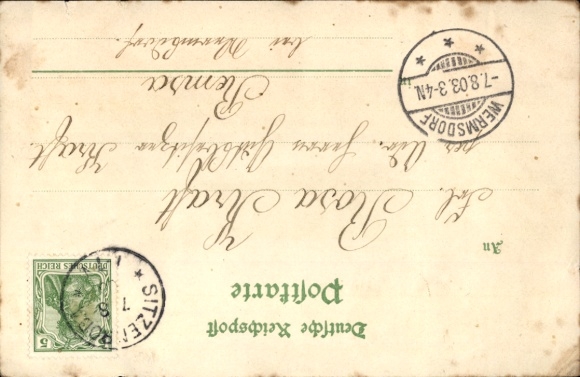 Deutsche Reichspost
Postkarte
DEUTSCHES REICH
5
SITZENRODA
7 8
An
Frl. Rosa Kraft
per Adr. Herrn Gutsbesitzer Kraft
Remsa
in
bei Wermsdorf.
WERMSDORF
-7.8.03.3-4N.